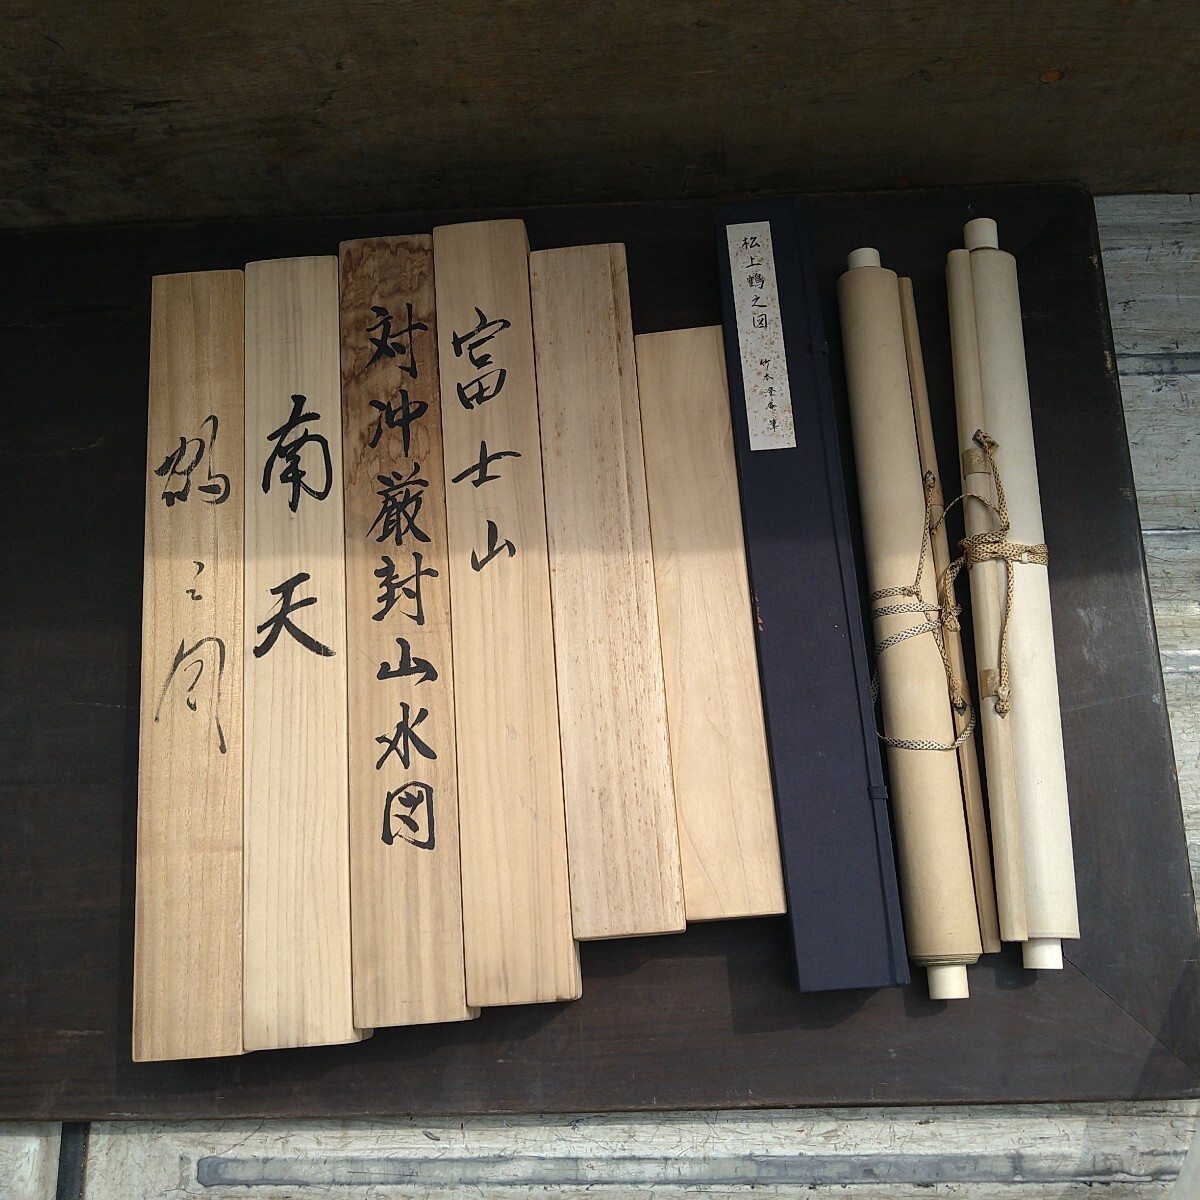 鶴之図
南天
対沖厳封山水図
富士山
松上鶴之図
竹本
筆